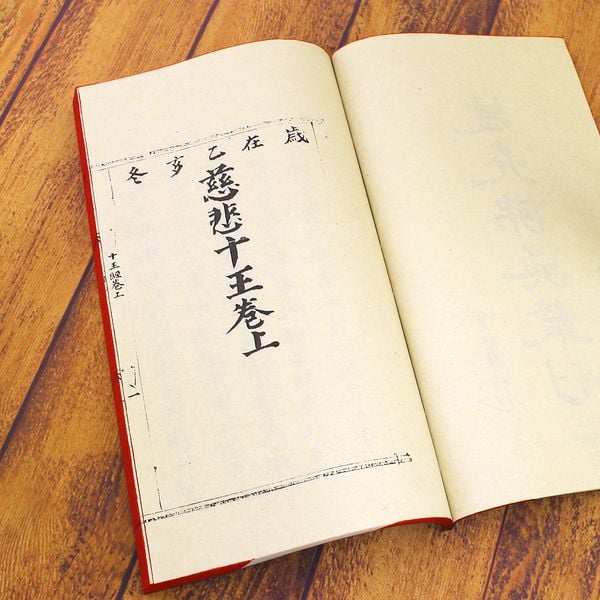 歲在乙亥冬
慈悲十王卷上
十王卷上